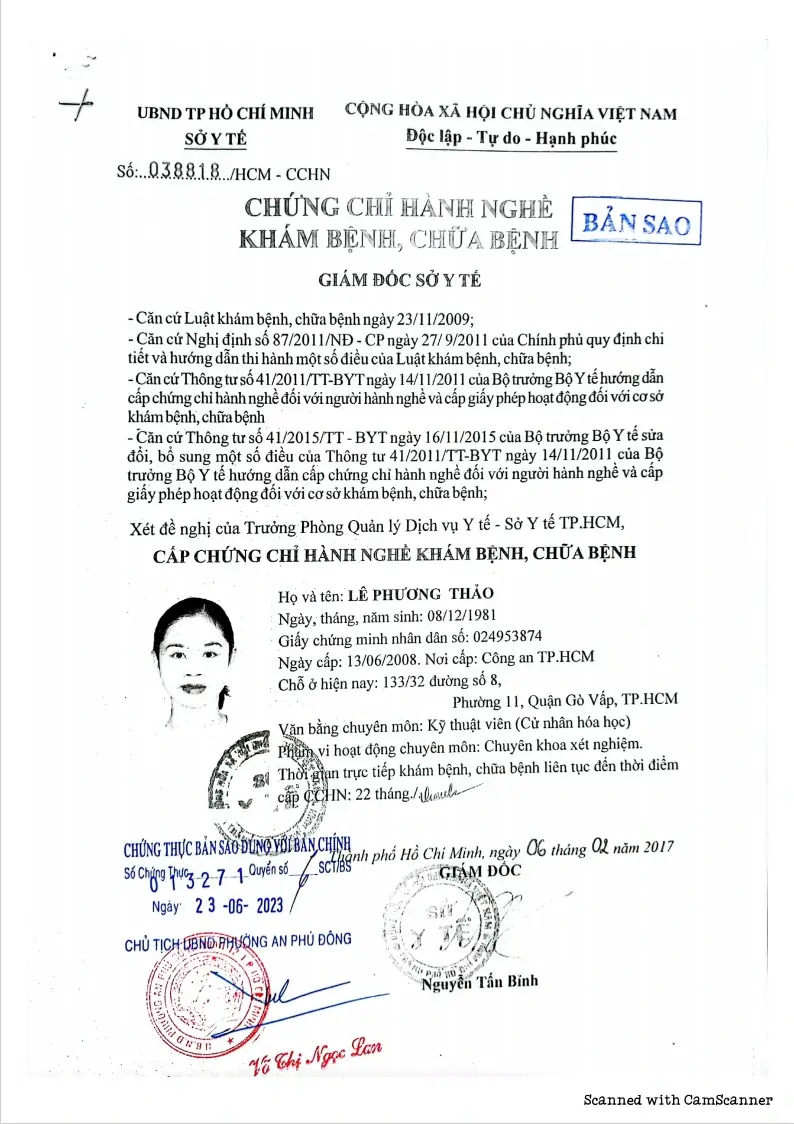 UBND TP HỒ CHÍ MINH
SỞ Y TẾ
CỘNG HÒA XÃ HỘI CHỦ NGHĨA VIỆT NAM
Độc lập - Tự do - Hạnh phúc
Số:..038818../HCM - CCHN
CHỨNG CHỈ HÀNH NGHỀ
KHÁM BỆNH, CHỮA BỆNH
BẢN SAO
GIÁM ĐỐC SỞ Y TẾ
- Căn cứ Luật khám bệnh, chữa bệnh ngày 23/11/2009;
- Căn cứ Nghị định số 87/2011/NĐ - CP ngày 27/ 9/2011 của Chính phủ quy định chi
tiết và hướng dẫn thi hành một số điều của Luật khám bệnh, chữa bệnh;
- Căn cứ Thông tư số 41/2011/TT-BYT ngày 14/11/2011 của Bộ trưởng Bộ Y tế hướng dẫn
cấp chứng chỉ hành nghề đối với người hành nghề và cấp giấy phép hoạt động đối với cơ sở
khám bệnh, chữa bệnh
- Căn cứ Thông tư số 41/2015/TT - BYT ngày 16/11/2015 của Bộ trưởng Bộ Y tế sửa
đổi, bổ sung một số điều của Thông tư 41/2011/TT-BYT ngày 14/11/2011 của Bộ
trưởng Bộ Y tế hướng dẫn cấp chứng chỉ hành nghề đối với người hành nghề và cấp
giấy phép hoạt động đối với cơ sở khám bệnh, chữa bệnh;
Xét đề nghị của Trưởng Phòng Quản lý Dịch vụ Y tế - Sở Y tế TP.HCM,
CẤP CHỨNG CHỈ HÀNH NGHỀ KHÁM BỆNH, CHỮA BỆNH
Họ và tên: LÊ PHƯƠNG THẢO
Ngày, tháng, năm sinh: 08/12/1981
Giấy chứng minh nhân dân số: 024953874
Ngày cấp: 13/06/2008. Nơi cấp: Công an TP.HCM
Chỗ ở hiện nay: 133/32 đường số 8,
Phường 11, Quận Gò Vấp, TP.HCM
Văn bằng chuyên môn: Kỹ thuật viên (Cử nhân hóa học)
Phạm vi hoạt động chuyên môn: Chuyên khoa xét nghiệm.
Thời gian trực tiếp khám bệnh, chữa bệnh liên tục đến thời điểm
cấp CCHN: 22 tháng./.
Thành phố Hồ Chí Minh, ngày 06 tháng 02 năm 2017
GIÁM ĐỐC
SỞ
Y TẾ
Nguyễn Tấn Bỉnh
CHỨNG THỰC BẢN SAO ĐÚNG VỚI BẢN CHÍNH
Số Chứng Thực 013271 Quyển số 6 SCT/BS
Ngày 23 -06- 2023
CHỦ TỊCH UBND PHƯỜNG AN PHÚ ĐÔNG
Võ Thị Ngọc Lan
Scanned with CamScanner